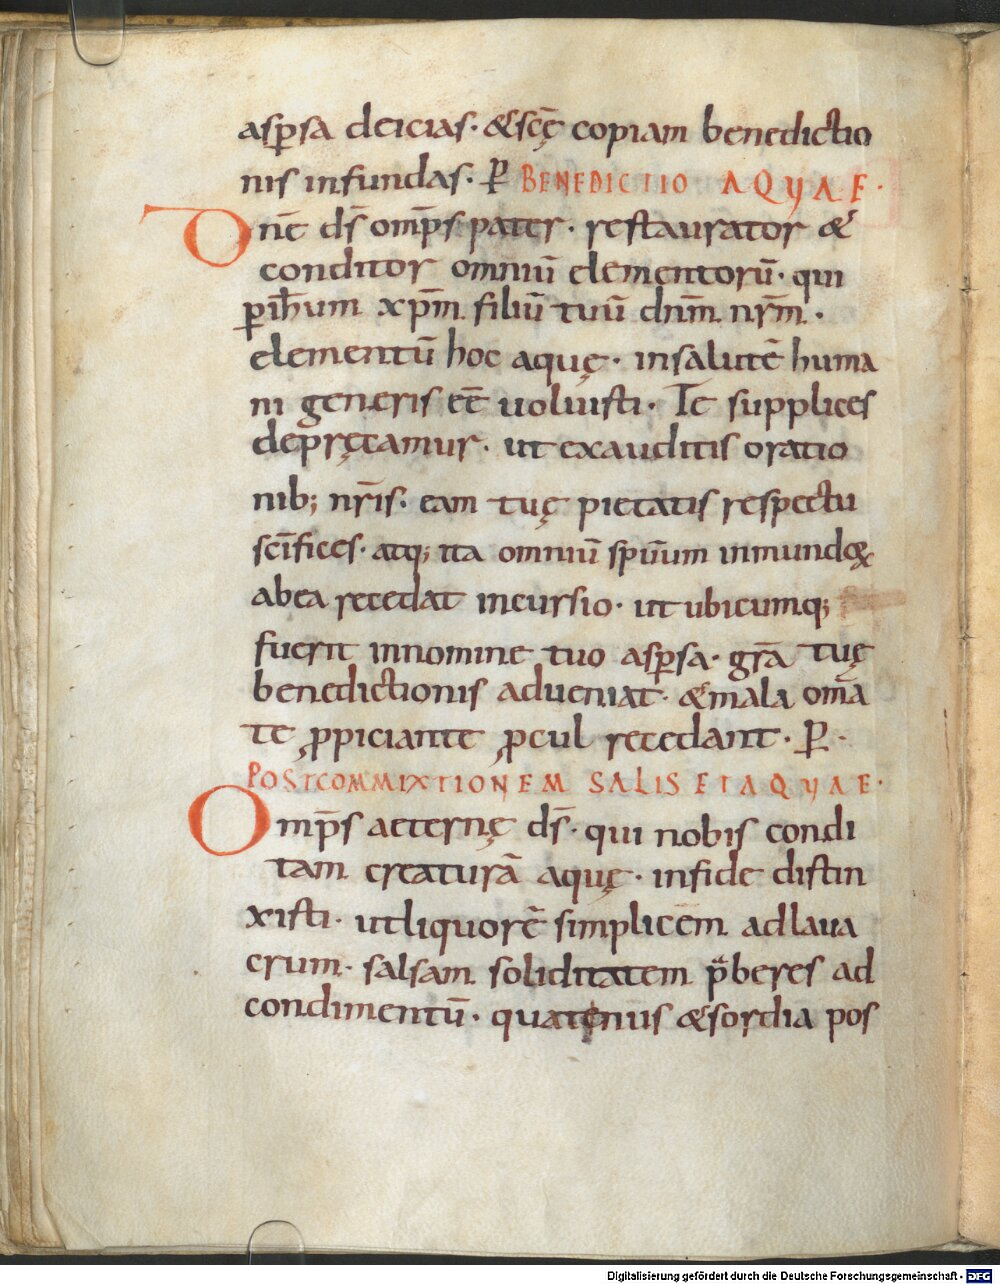 asꝑsa deicias· &scę̄ copiam benedictio
nis infundas· ꝑ BENEDICTIO AQUAE·
Dnē ds̄ omp̄s pater· restaurator &
conditor omniū elementorū· qui
ꝑ ih̄um xp̄m filiū tuū dnm̄ nrm̄·
elementū hoc aquę· insalutē huma
ni generis eē uoluisti· Te supplices
depręcamur· ut exauditis oratio
nib; nr̄is· eam tuę pietatis respectu
scīfices· atq; ita omniū spiīuum inmundoꝝ
abea recedat incursio· ut ubicumq;
fuerit innomine tuo asꝑsa· gr̄a tuę
benedictionis adueniat· &mala om̄a
te ꝓpiciante ꝓcul recedant· ꝑ·
POSTCOMMIXTIONEM SALIS ETAQUAE·
Omp̄s aeternę ds̄· qui nobis condi
tam creaturā aquę· infide distin
xisti· utliquorē simplicem adlaua
crum· salsam soliditatem p̄beres ad
condimentū· quatenus &sordia pos
Digitalisierung gefördert durch die Deutsche Forschungsgemeinschaft - DFG